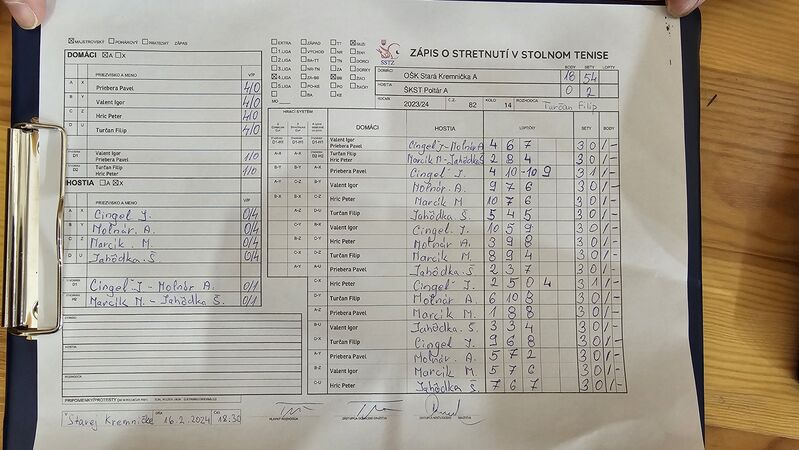 MAJSTROVSKÝ POHÁROVÝ PRIATEĽSKÝ ZÁPAS
SSTZ
ZÁPIS O STRETNUTÍ V STOLNOM TENISE
DOMÁCI A X
PRIEZVISKO A MENO V/P
A X Priebera Pavel 4/0
B Y Valent Igor 4/0
C Z Hric Peter 4/0
D U Turčan Filip 4/0
D1 Valent Igor Priebera Pavel 1/0
D2 Turčan Filip Hric Peter 1/0
HOSTIA A X
PRIEZVISKO A MENO V/P
A X Cingel J. 0/4
B Y Molnár. A. 0/4
C Z Marcík M. 0/4
D U Jahôdka Š. 0/4
D1 Cingel J - Molnár A. 0/1
Marcík M. - Jahôdka Š. 0/1
EXTRA ZÁPAD TT MUŽI
1.LIGA VÝCHOD NR ŽENY
2.LIGA BA-TT TN DORCI
3.LIGA NR-TN ZA DORKY
4.LIGA ZA-BB BB ŽIACI
5.LIGA PO-KE PO ŽIAČKY
BA KE
DOMÁCI OŠK Stará Kremnička A BODY 18 SETY 54 LOPTY
HOSTIA ŠKST Poltár A 0 2
ROČNÍK 2023/24 Č.Z. 82 KOLO 14 ROZHODCA Turčan Filip
HRACÍ SYSTÉM DOMÁCI HOSTIA LOPTIČKY SETY BODY
Valent Igor Priebera Pavel Cingel J - Molnár A 4 6 7 3 0 1/-
Turčan Filip Hric Peter Marcík M - Jahôdka Š 2 8 4 3 0 1/-
Priebera Pavel Cingel J. 4 10 -10 9 3 1 1/-
Valent Igor Molnár. A. 9 7 6 3 0 1/-
Hric Peter Marcík M 10 7 6 3 0 1/-
Turčan Filip Jahôdka Š. 5 4 5 3 0 1/-
Valent Igor Cingel J. 10 5 9 3 0 1/-
Hric Peter Molnár A. 3 9 8 3 0 1/-
Turčan Filip Marcík M. 8 9 4 3 0 1/-
Priebera Pavel Jahôdka Š. 2 3 7 3 0 1/-
Hric Peter Cingel J. 2 5 0 4 3 1 1/-
Turčan Filip Molnár A. 6 10 8 3 0 1/-
Priebera Pavel Marcík M. 1 8 8 3 0 1/-
Valent Igor Jahôdka. Š. 3 3 4 3 0 1/-
Turčan Filip Cingel J. 9 6 8 3 0 1/-
Priebera Pavel Molnár. A. 5 7 2 3 0 1/-
Valent Igor Marcík M. 5 7 6 3 0 1/-
Hric Peter Jahôdka Š. 7 6 7 3 0 1/-
PRIPOMIENKY/PROTESTY
V Starej Kremničke DŇA 16.2.2024 ČAS 18:30